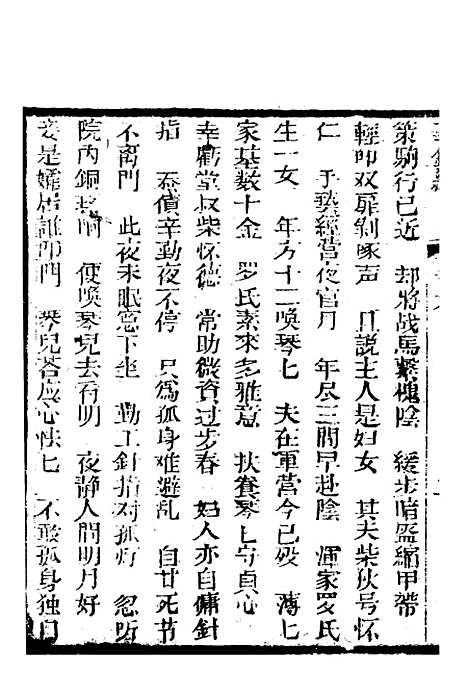 策駒行已近　却將战馬繫槐陰　緩步暗盔縮甲帶
輕叩双扉剝啄声　且說主人是妇女　其夫柴狄号怀
仁　手藝經营度宦月　年尽三間早赴陰　渾家罗氏
生一女　年方十二喚琴七　夫在軍营今已殁　薄七
家基数十金　罗氏素來多雅意　扶養琴七守貞心
幸虧堂叔柴怀德　常助微資过步春　妇人亦自傭針
指　蚕債辛勤夜不停　只為孤身难避乱　自甘死节
不离門　此夜未眠窓下坐　勤工針指对孤灯　忽听
院內銅环响　便喚琴兒去看明　夜静人間明月好
妾是孀居誰叩門　琴兒荅应心怯七　不敢孤身独自